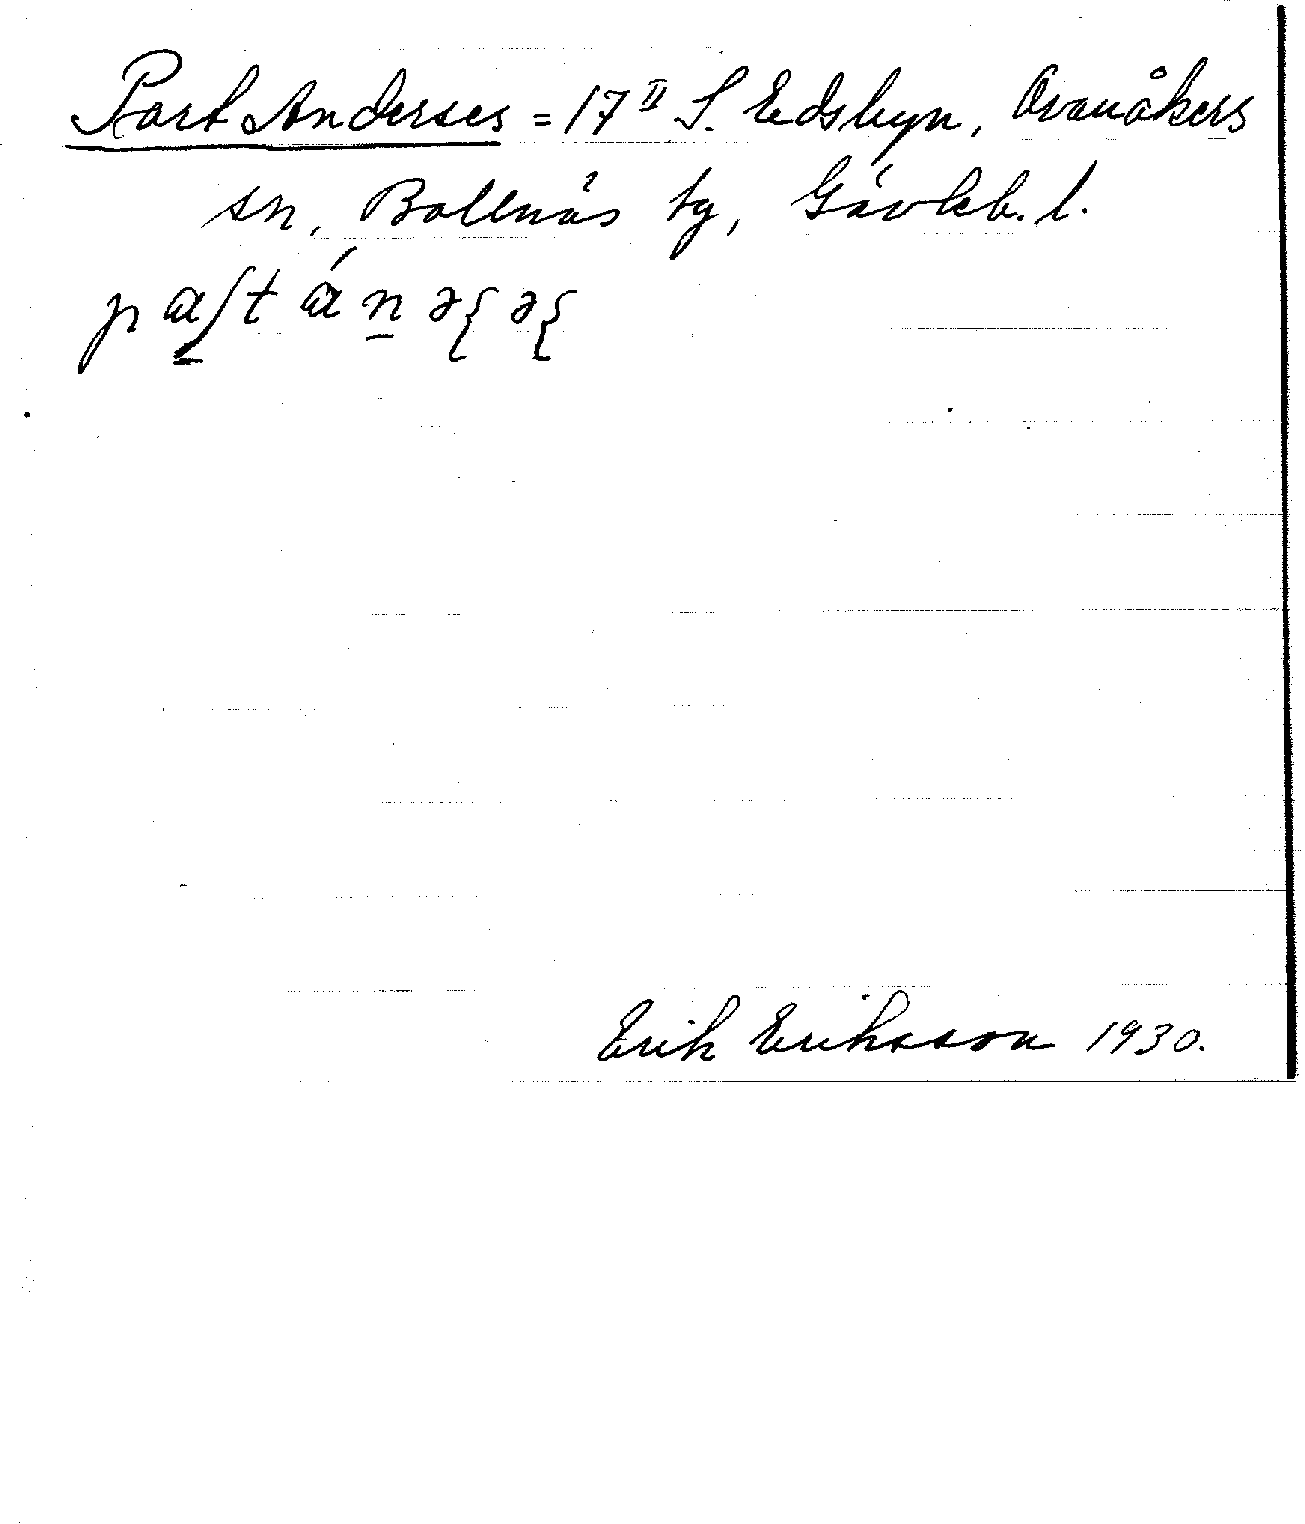 Part Anderses = 17 II S. Edsbyn, Ovanåkers
sn, Bollnäs tg, Gävleb. l.
Erik Eriksson 1930.